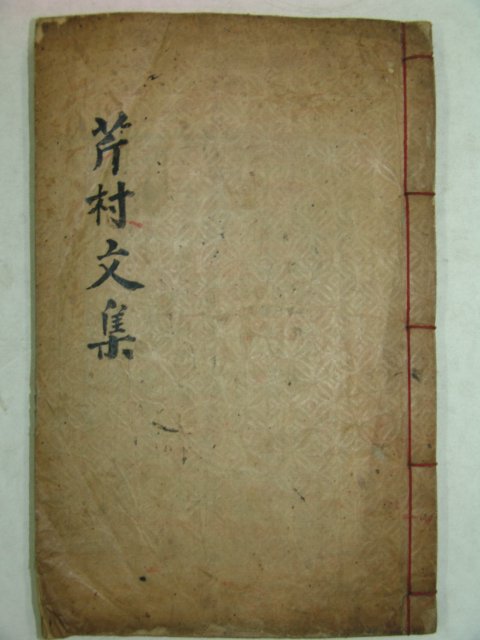 芹村文集